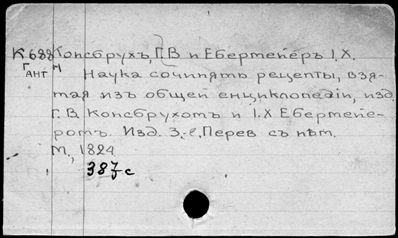 К 688 Консбрухъ, Г.В и Ебермейеръ І.Х.
Гант
Наука сочинять рецепты, взя-
тая изъ общей енциклопедіи, изд.
Г.В. Консбрухомъ и І.Х Ебермейе-
ромъ. Изд. 3-е. Перев съ нѣм.
М., 1824
387 с